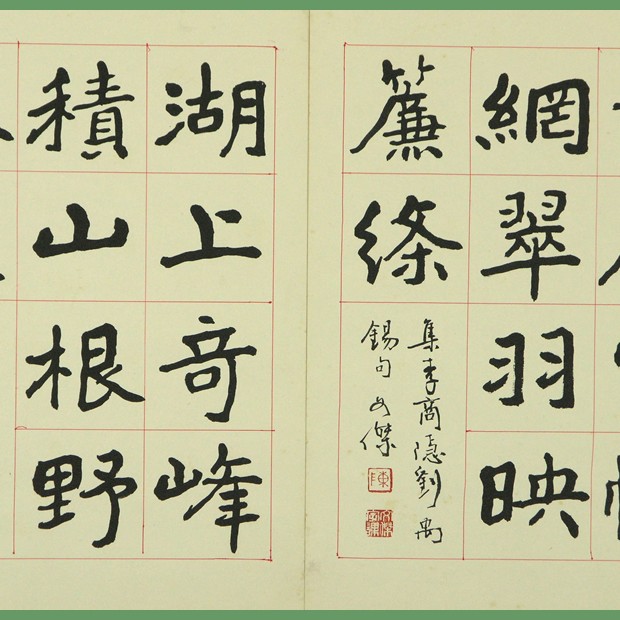 網翠羽映
簾絛
集李商隱劉禹
錫句文傑
陳
湖上竒峰
積山根野